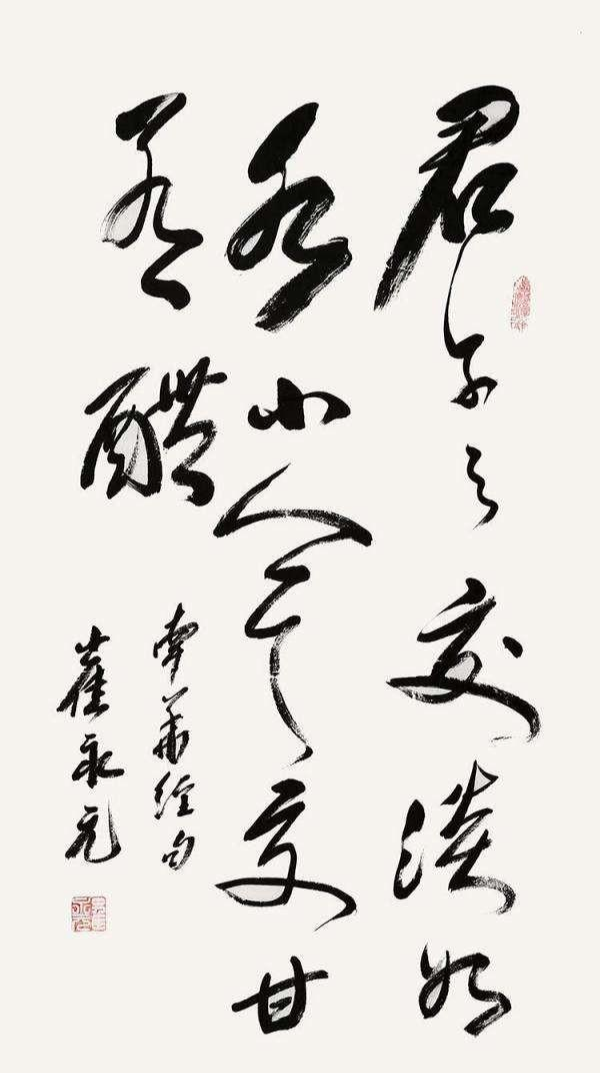 君子之交淡如
水小人之交甘
若醴
南華經句
崔永元